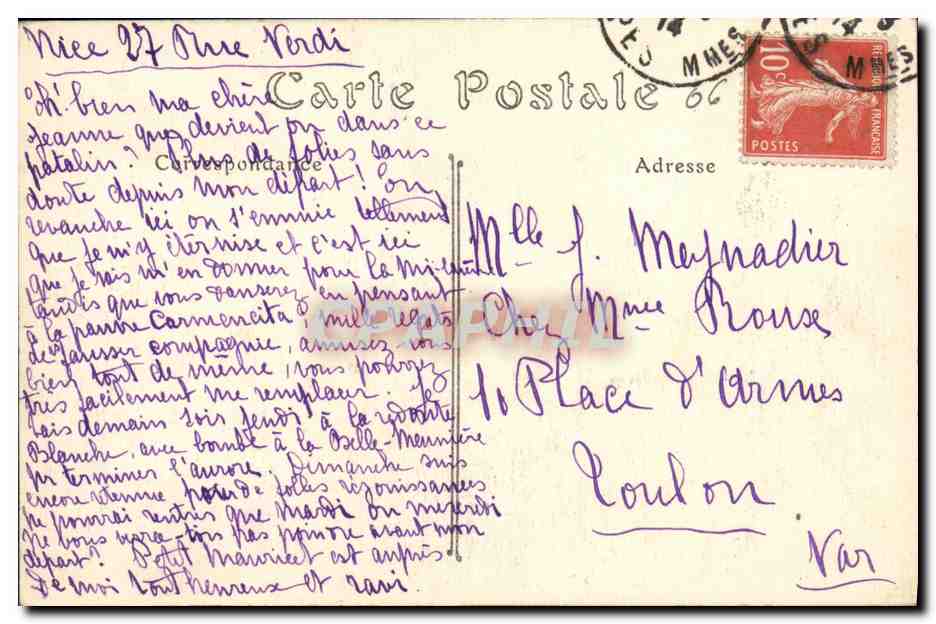 Nice 27 Rue Verdi
Carte Postale
66
14
MMES
14
MMES
10c
REPUBLIQUE FRANÇAISE
POSTES
Correspondance
Adresse
Oh! bien ma chère
Jeanne que devient on dans ce
patelin? Plus de folies sans
doute depuis mon départ! En
revanche ici on s'ennuie tellement
que je m'y éternise et c'est ici
que je vais m'en donner pour la Mi-carême
tandis que vous danserez en pensant
à la pauvre Carmencita! mille regrets
de fausser compagnie, amusez vous
bien tout de même, vous pouvez
très facilement me remplacer. Je
vais demain soir jeudi à la redoute
Blanche, avec bombe à la Belle-Meunière
pr terminer l'aurore. Dimanche suis
encore retenue pour de folles réjouissances
ne pourrai rentrer que mardi ou mercredi
Ne vous avant mon
départ? Petit Maurice est auprès
de moi tout heureux et ravi.
Mlle J. Meynadier
Chez Mme Roux
10 Place d'Armes
Toulon
Var
CPAPHIL